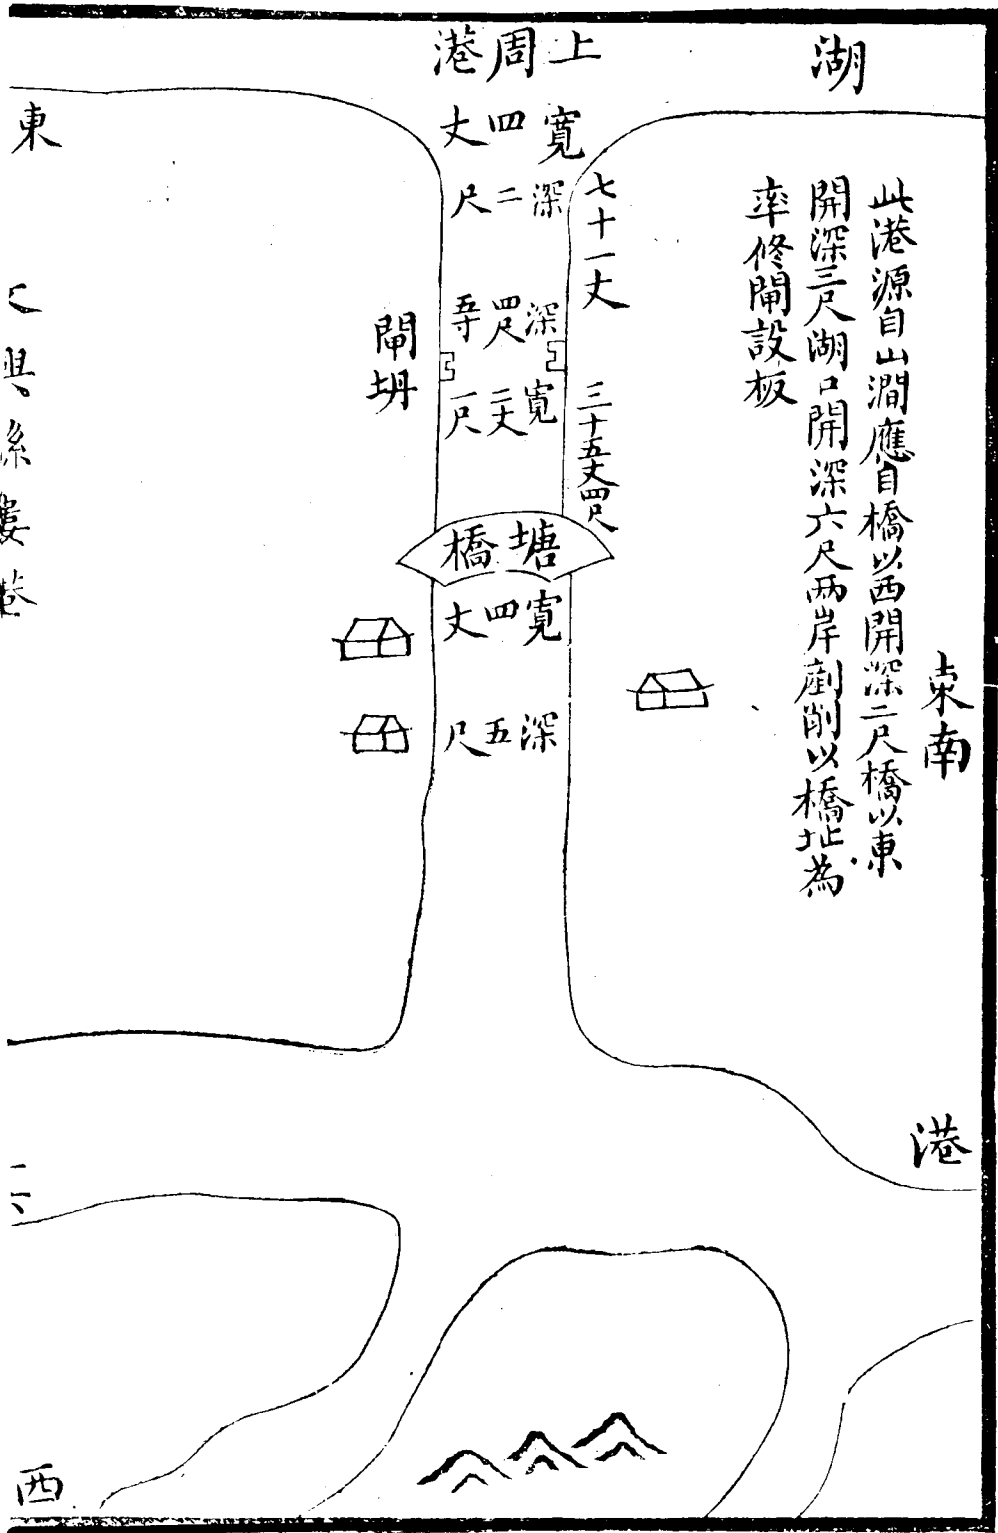 湖
上周港
寬四丈
深二尺
七十一丈
深四尺五寸
閘坍
寬二丈一尺
三十五丈四尺
塘橋
寬四丈
深五尺
東南
此港源自山澗應自橋以西開深二尺橋以東
開深三尺湖口開深六尺兩岸剷削以橋址為
率修閘設板
港
東
西